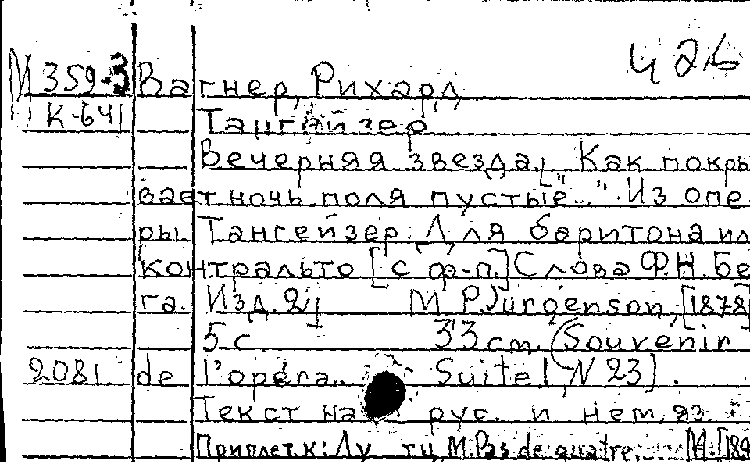 ч 26
М 359-3 Вагнер, Рихард
К-641 Тангейзер
Вечерняя звезда. [Как покры
вает ночь поля пустые..." Из опе
ры Тангейзер. Для баритона ил
контральто [с ф-п.] Слова Ф.Н. Бе
га. Изд. 2] М. P. Jurgenson, [1878]
5 с 33 см. (Souvenir
2081 de l'opéra... Suite I, N 23].
Текст на рус. и нем. яз
Приплет. к: М. Pas de quatre. М. [189